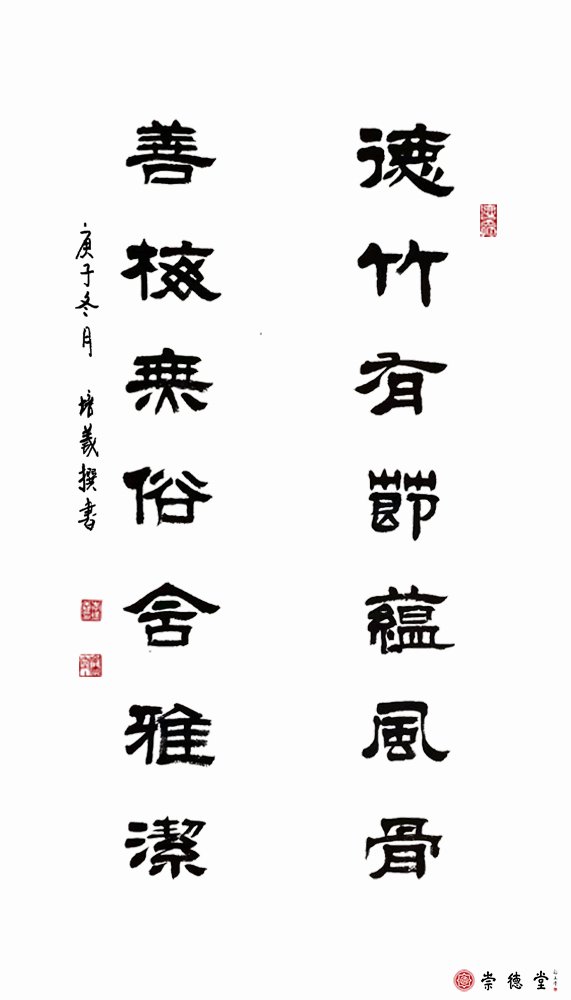 德竹有節蘊風骨
善梅無俗含雅潔
庚子冬月 培義撰书
崇德堂